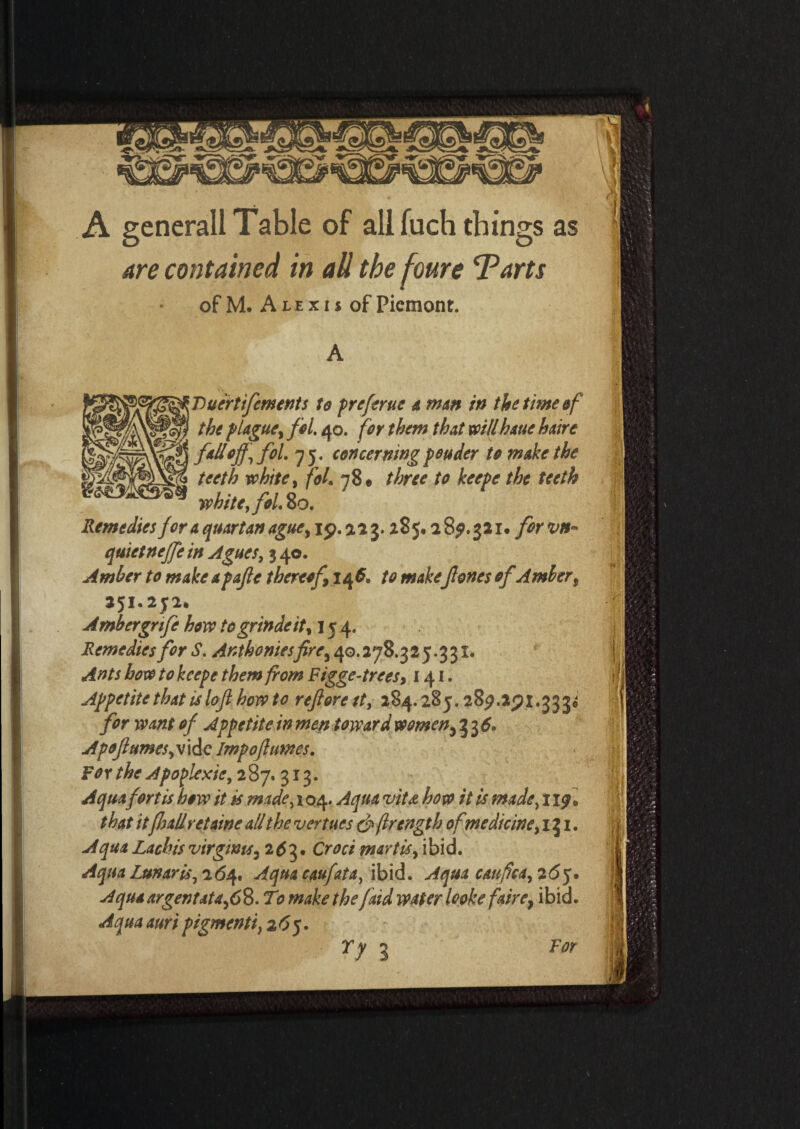 A generall Table of all ſuch things as
are contained in all the foure Parts
of M. ALEXIS of Piemont.
A
ADuertiſements to preſerue a man in the time of
the plague, fol. 40. for them that will haue haire
fall off, fol. 75. concerning pouder to make the
teeth white, fol. 78. three to keepe the teeth
white, fol. 80.
Remedies for a quartan ague, 19. 223. 285. 289. 321. for vn-
quietneſſe in Agues, 340.
Amber to make a paſte thereof, 146. to make ſtones of Amber,
251. 252.
Ambergriſe how to grinde it, 154.
Remedies for S. Anthonies fire, 40. 278. 325. 331.
Ants how to keepe them from Figge-trees, 141.
Appetite that is loſt how to reſtore it, 284. 285. 289. 291. 333.
for want of Appetite in men toward women, 336.
Apoſtumes, vide Impoſtumes.
For the Apoplexie, 287. 313.
Aqua fortis how it is made, 104. Aqua vitæ how it is made, 119.
that it ſhall retaine all the vertues & ſtrength of medicine, 131.
Aqua Lachis virginis, 263. Croci martis, ibid.
Aqua Lunaris, 264. Aqua cauſata, ibid. Aqua cauſica, 265.
Aqua argentata, 68. To make the ſaid water looke faire, ibid.
Aqua auri pigmenti, 265.
Yy 3 For